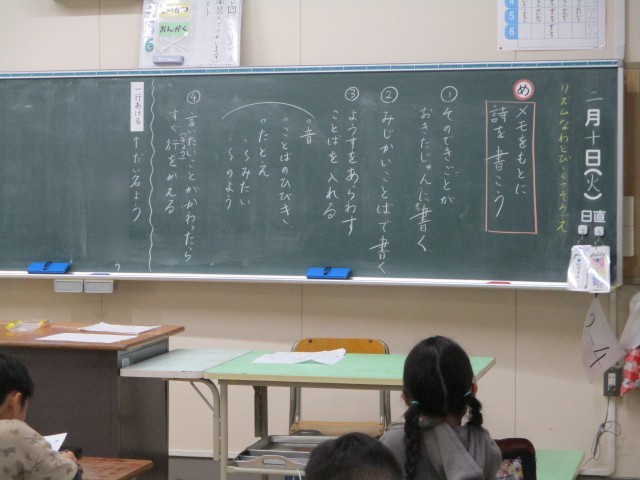 二月十日(火)
日直
め
メモをもとに
詩を書こう
① そのできごとが
おきたじゅんに書く
② みじかいことばで書く
③ ようすをあらわす
ことばを入れる
音
・ことばのひびき
・たとえ
・～みたい
・～のよう
④ 言いたいことがかわったら
すぐ行をかえる
一行あける
↑だい名よう
おんがく
4
5
6